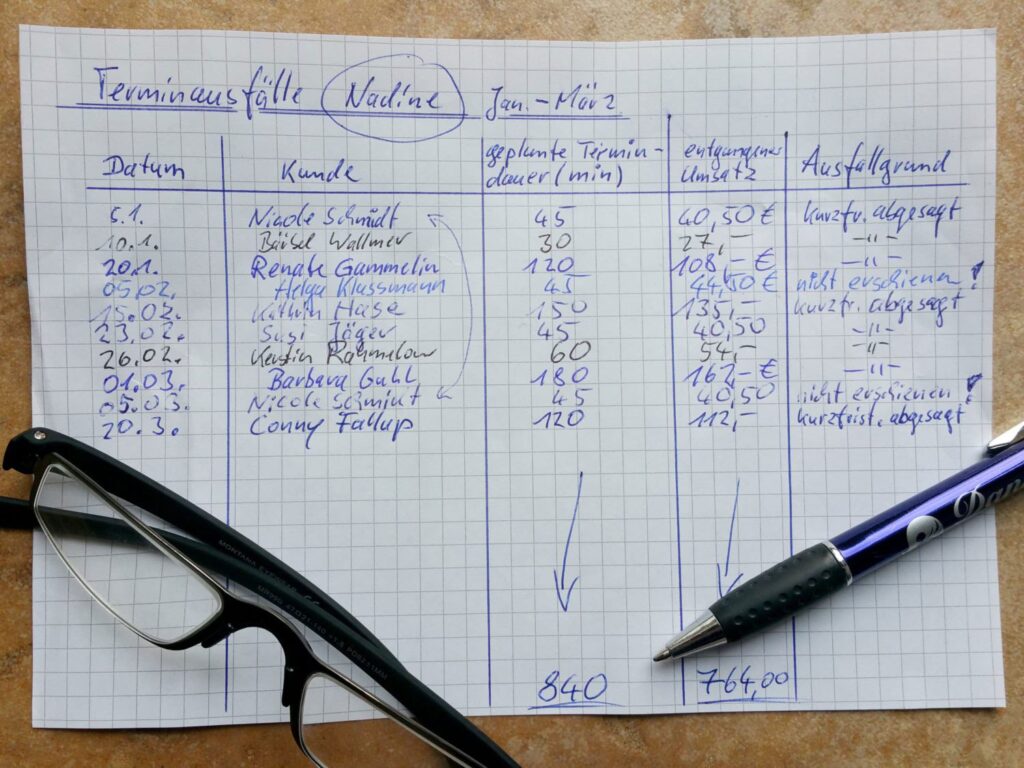 Terminausfälle Nadine Jan. - März
Datum Kunde geplante Termin-dauer (min) entgangener Umsatz Ausfallgrund
5.1. Nicole Schmidt 45 40,50 € kurzfr. abgesagt
10.1. Bärbel Wallmer 30 27,- -"-
20.1. Renate Gammelin 120 108,- € -"-
05.02. Helga Klassmann 45 44,50 € nicht erschienen!
15.02. Kathrin Hase 150 135,- kurzfr. abgesagt
23.02. Susi Jäger 45 40,50 -"-
26.02. Kerstin Rahmelow 60 54,- -"-
01.03. Barbara Guhl 180 162,- € -"-
05.03. Nicole Schmidt 45 40,50 nicht erschienen!
20.3. Conny Fallup 120 112,- kurzfrist. abgesagt
840 764,00
MONTANA EYEWEAR